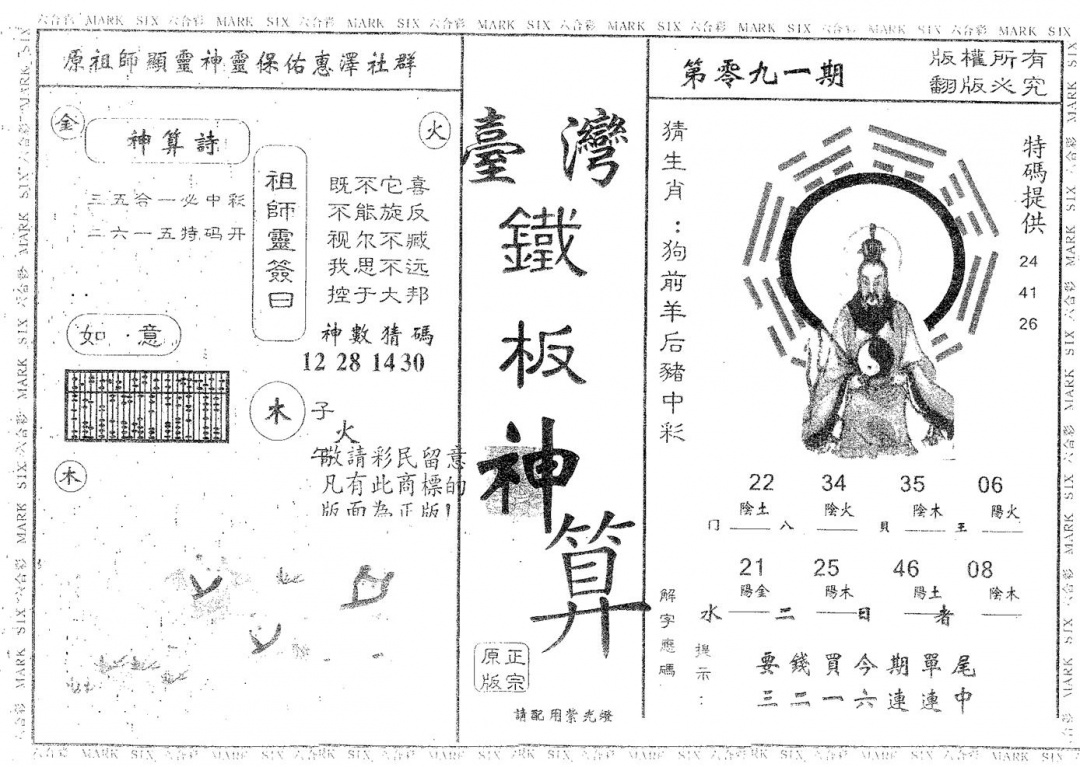 六合彩 MARK SIX 六合彩 MARK SIX 六合彩 MARK SIX 六合彩 MARK SIX 六合彩 MARK SIX 六合彩 MARK SIX 六合彩 MARK SIX 六合彩 MARK SIX
原祖師顯靈神靈保佑惠澤社群
金
神算詩
三五合一必中彩
二六一五特码开
火
祖師靈簽曰
既不它喜
不能旋反
视尔不臧
我思不远
控于大邦
神數猜碼
12 28 14 30
如·意
木
子
火
午
木
敬請彩民留意
凡有此商標的
版面為正版!
臺灣
鐵
板
神
算
正宗
原版
請配用紫光燈
第零九一期
版權所有
翻版必究
猜生肖：狗前羊后豬中彩
特碼提供
24
41
26
22 34 35 06
陰土 陰火 陰木 陽火
门 八 貝 王
21 25 46 08
陽金 陽木 陽土 陰木
水 二 日 者
解字應碼
提示：
要錢買今期單尾
三二一六連連中
六合彩 MARK SIX 六合彩 MARK SIX 六合彩 MARK SIX 六合彩 MARK SIX 六合彩 MARK SIX 六合彩 MARK SIX 六合彩 MARK SIX 六合彩 MARK SIX